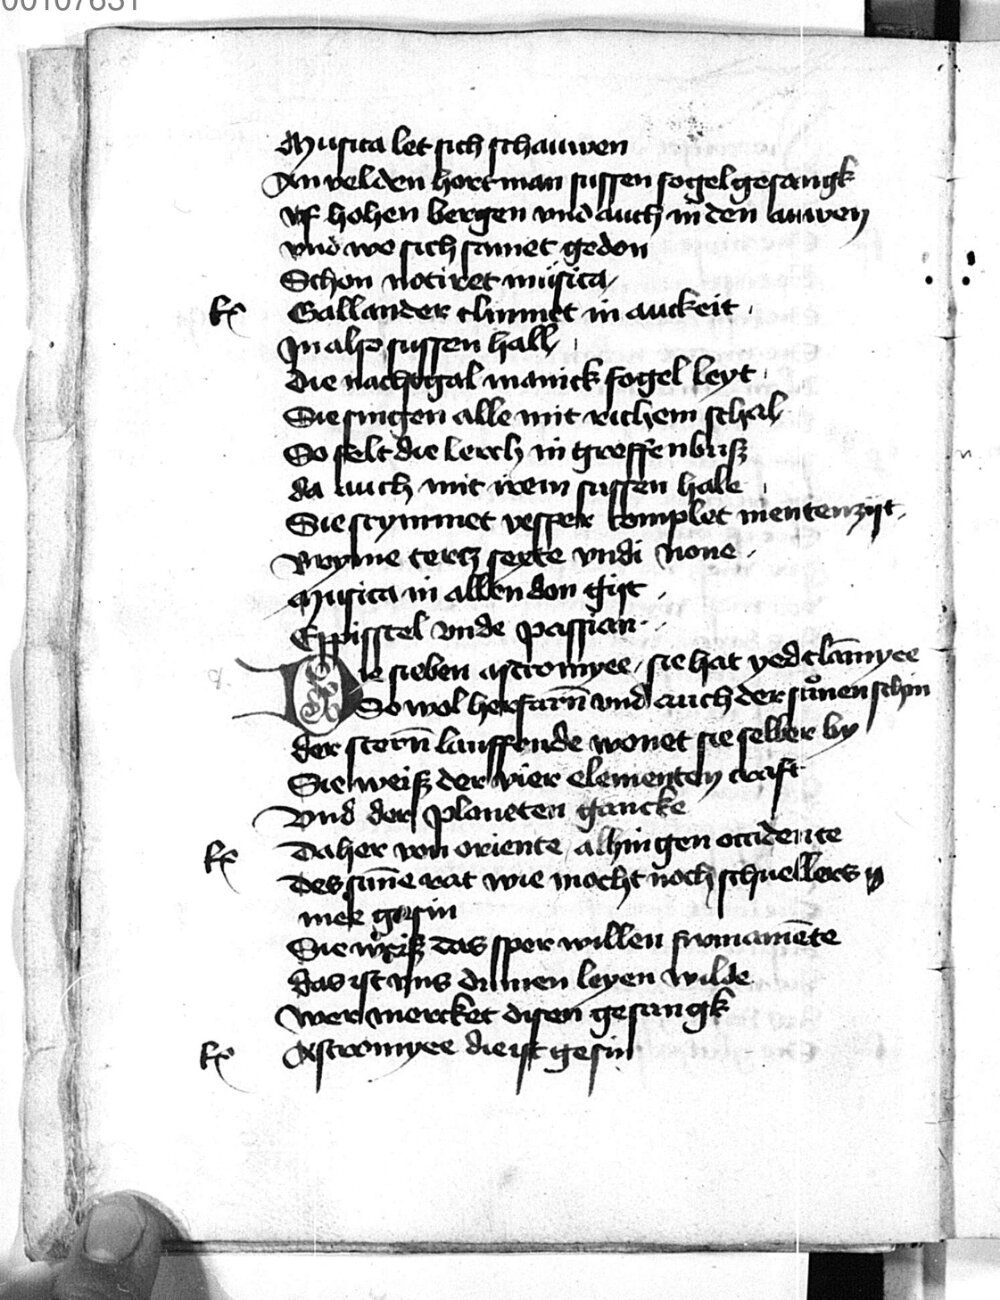 00107631
Musica let sich schauwen
An velden hort man sussen fogel gesangk
vf hohen bergen vnd auch in den auwen
vnd wo sich sinnet gedon
Schon notiret musica
Gallander clinnet in auckeit
In also sussen hall
die nachtgal manick fogel leyt
Sie singen alle mit richem schal
So felt die lerch in grossen
da auch mit irem sussen halle
Sie stymmet vesper komplet mentenzijt
Pryme tertz sexte vndi none
Musica in allen don gist
Episstel vnde passian
Die sieben astromyee sie hat
So wol herfarn vnd auch der sunen schin
der stern lauffende wonet sie selber by
Sie weiß der vier elementen craft
Vnd der planeten gancke
Daher von oriente alhingen occidente
Des sunne rat wie mocht noch schnellers
mer gesin
Sie weiß das sper willen firmamente
das ist vns dummen leyen wilde
Wer mercket disen gesangk
Astromyee die ist gesin